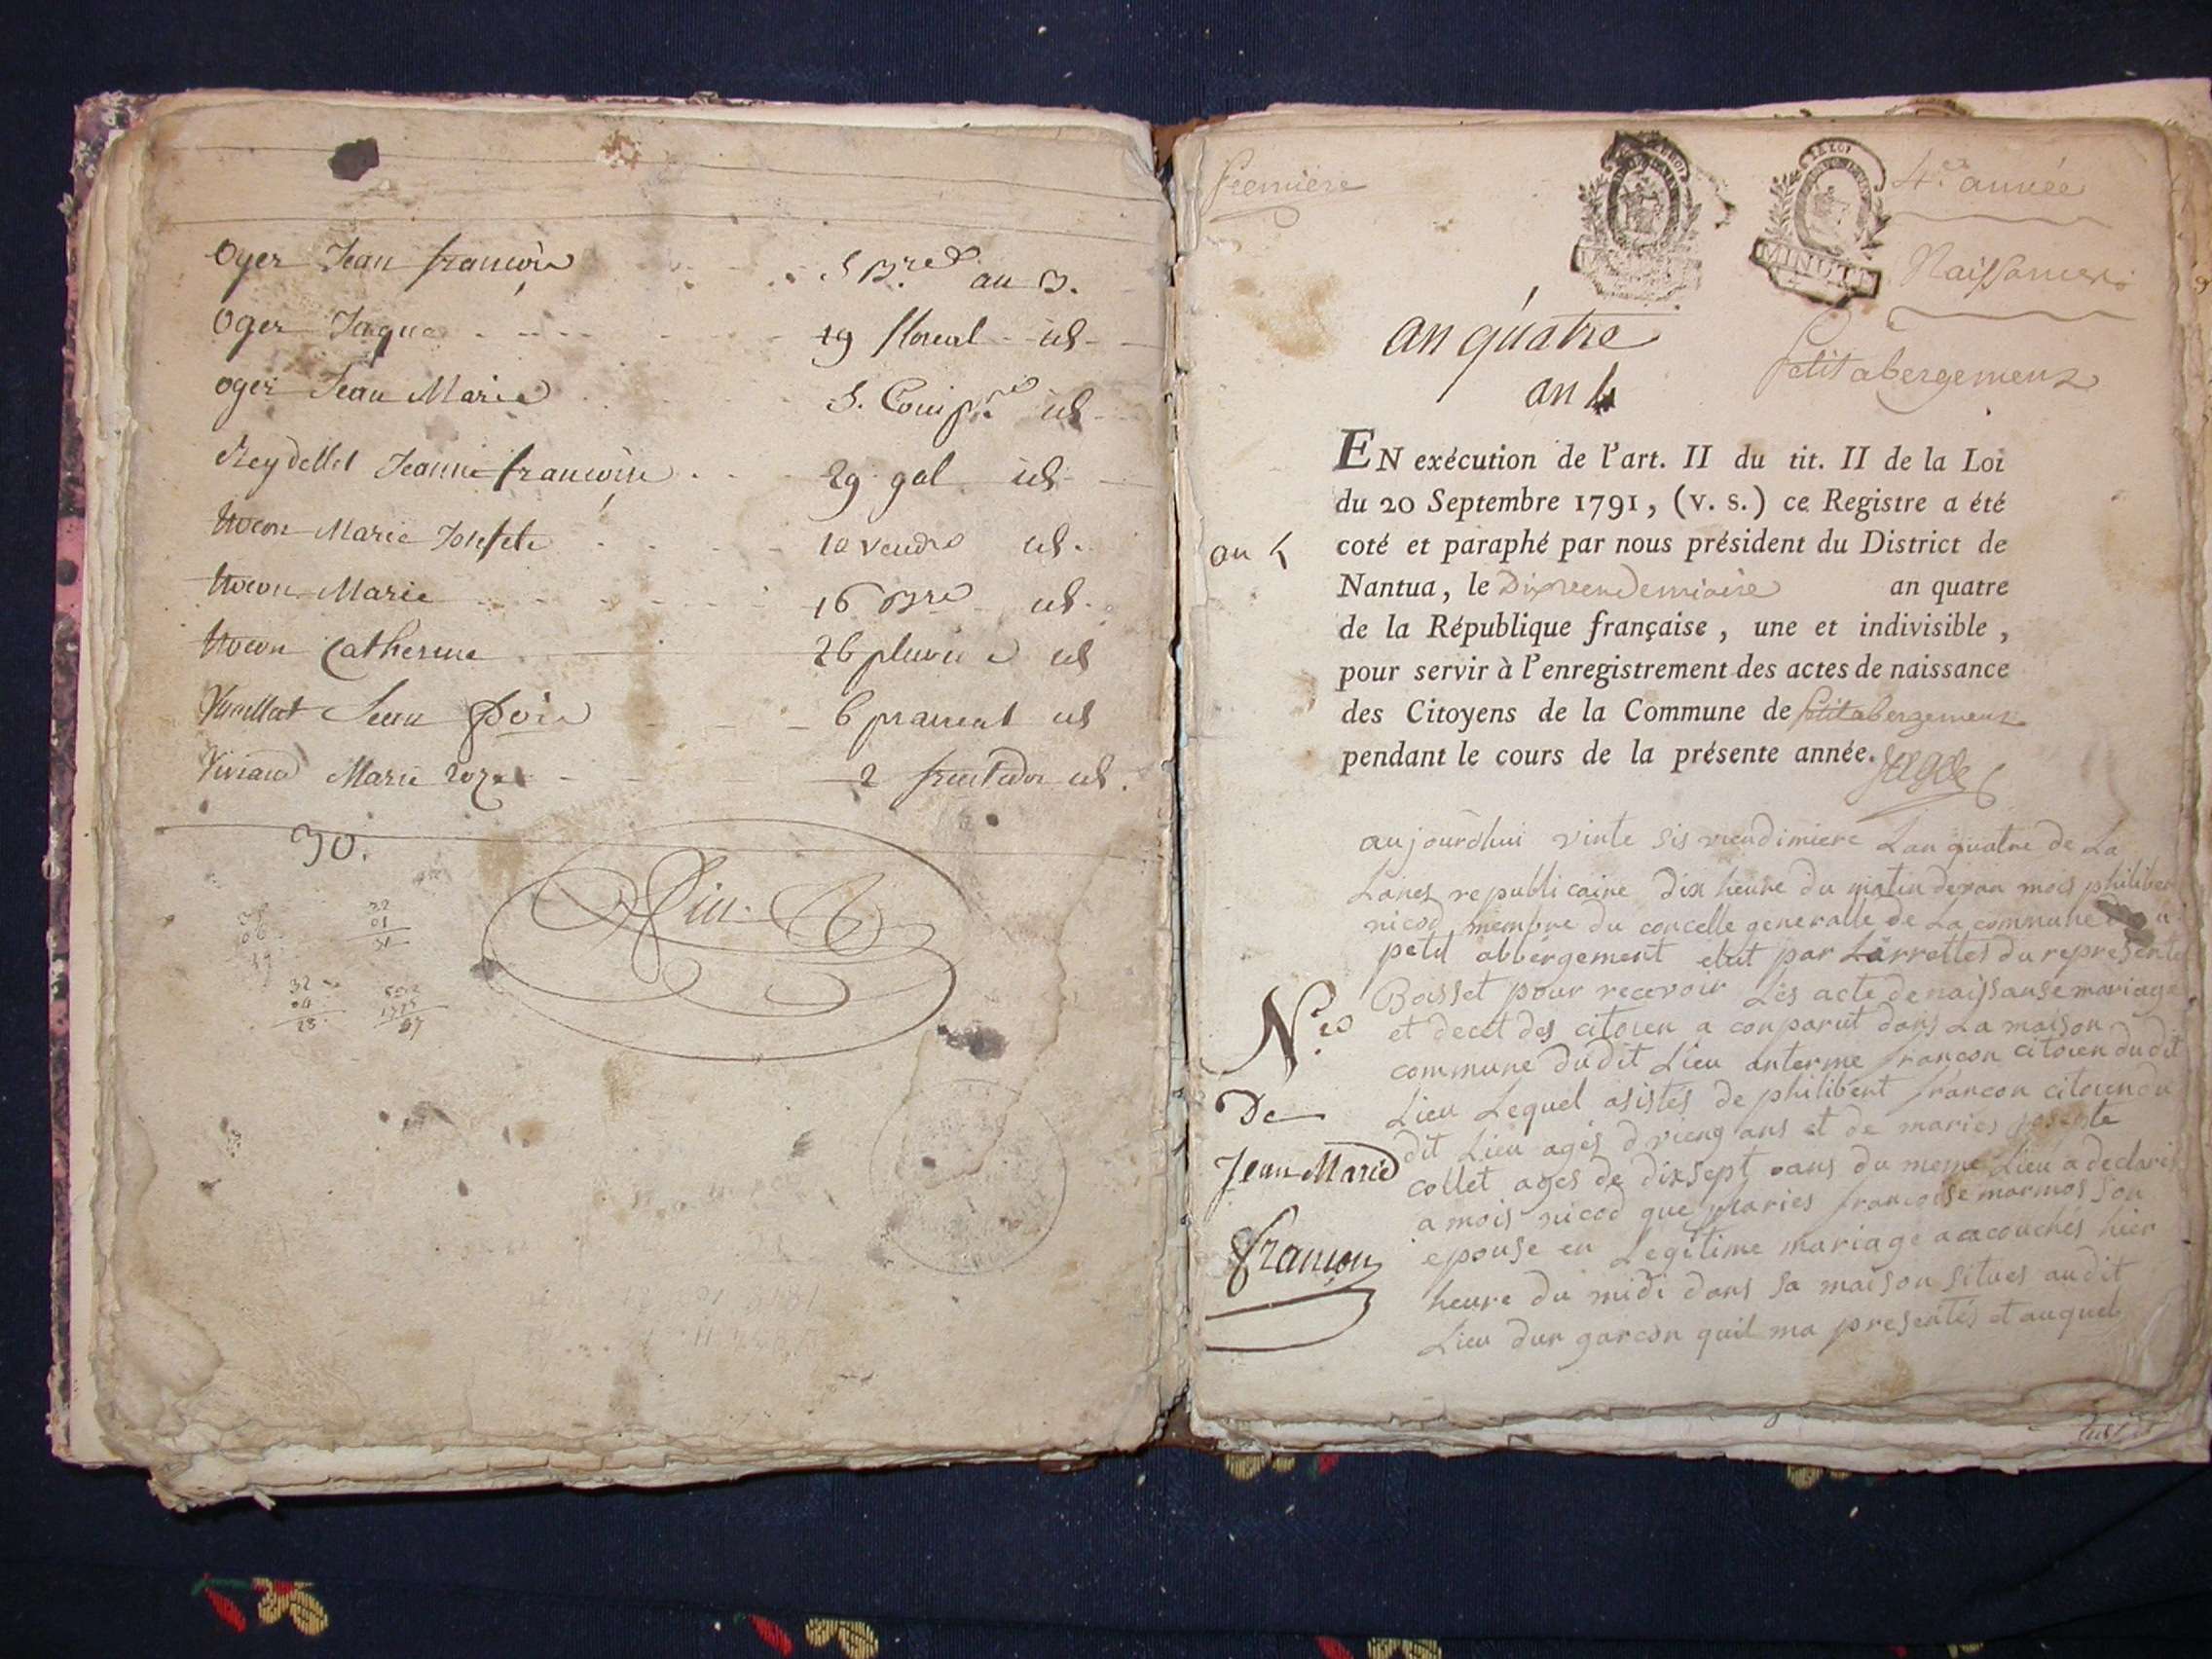 Oger Jean françois au 3.
Oger Jaque 19 floreal id
oger Jean Marie 5. Comp.re id
Reydellet Jeanne françoise 29 gal id
Marie Josephte 10 vendre id.
Marie 16 Bre id.
Catherine 26 pluviose id
Jean fois 6 prairial id
Viviand Marie roze 2 fructidor id.
30.
Fin.
32
01
31
32
04
28.
premiere
4.e année
MINUTE
Naissances
Petit abergement
an quatre
an 4
EN exécution de l'art. II du tit. II de la Loi
du 20 Septembre 1791, (v. s.) ce Registre a été
coté et paraphé par nous président du District de
an 4
Nantua, le Dix vendemiaire an quatre
de la République française, une et indivisible,
pour servir à l'enregistrement des actes de naissance
des Citoyens de la Commune de petit abergement
pendant le cours de la présente année.
aujourdhui vinte sis vendimiere Lan quatre de La
Lanes republicaine dix heure du matin devan mois philiber
nicod membre du concelle generalle de La commune
petit abbergement elut par Larrettes du represente
Boisset pour recevoir Les acte de naissanse mariage
et decet des citoien a conparut dans La maison
commune dudit Lieu anterme francon citoien dudit
Lieu Lequel asistes de philibert francon citoien du
dit Lieu agés d vieng ans et de maries josephte
collet ages de dixsept ans du meme Lieu a declares
a mois nicod que maries francoise marmos son
epouse en Legitime mariage a acouchés hier
heure du midi dans sa maison situes audit
Lieu dun garcon quil ma presentés et auquel
N.ce
De
Jean Marie
françon